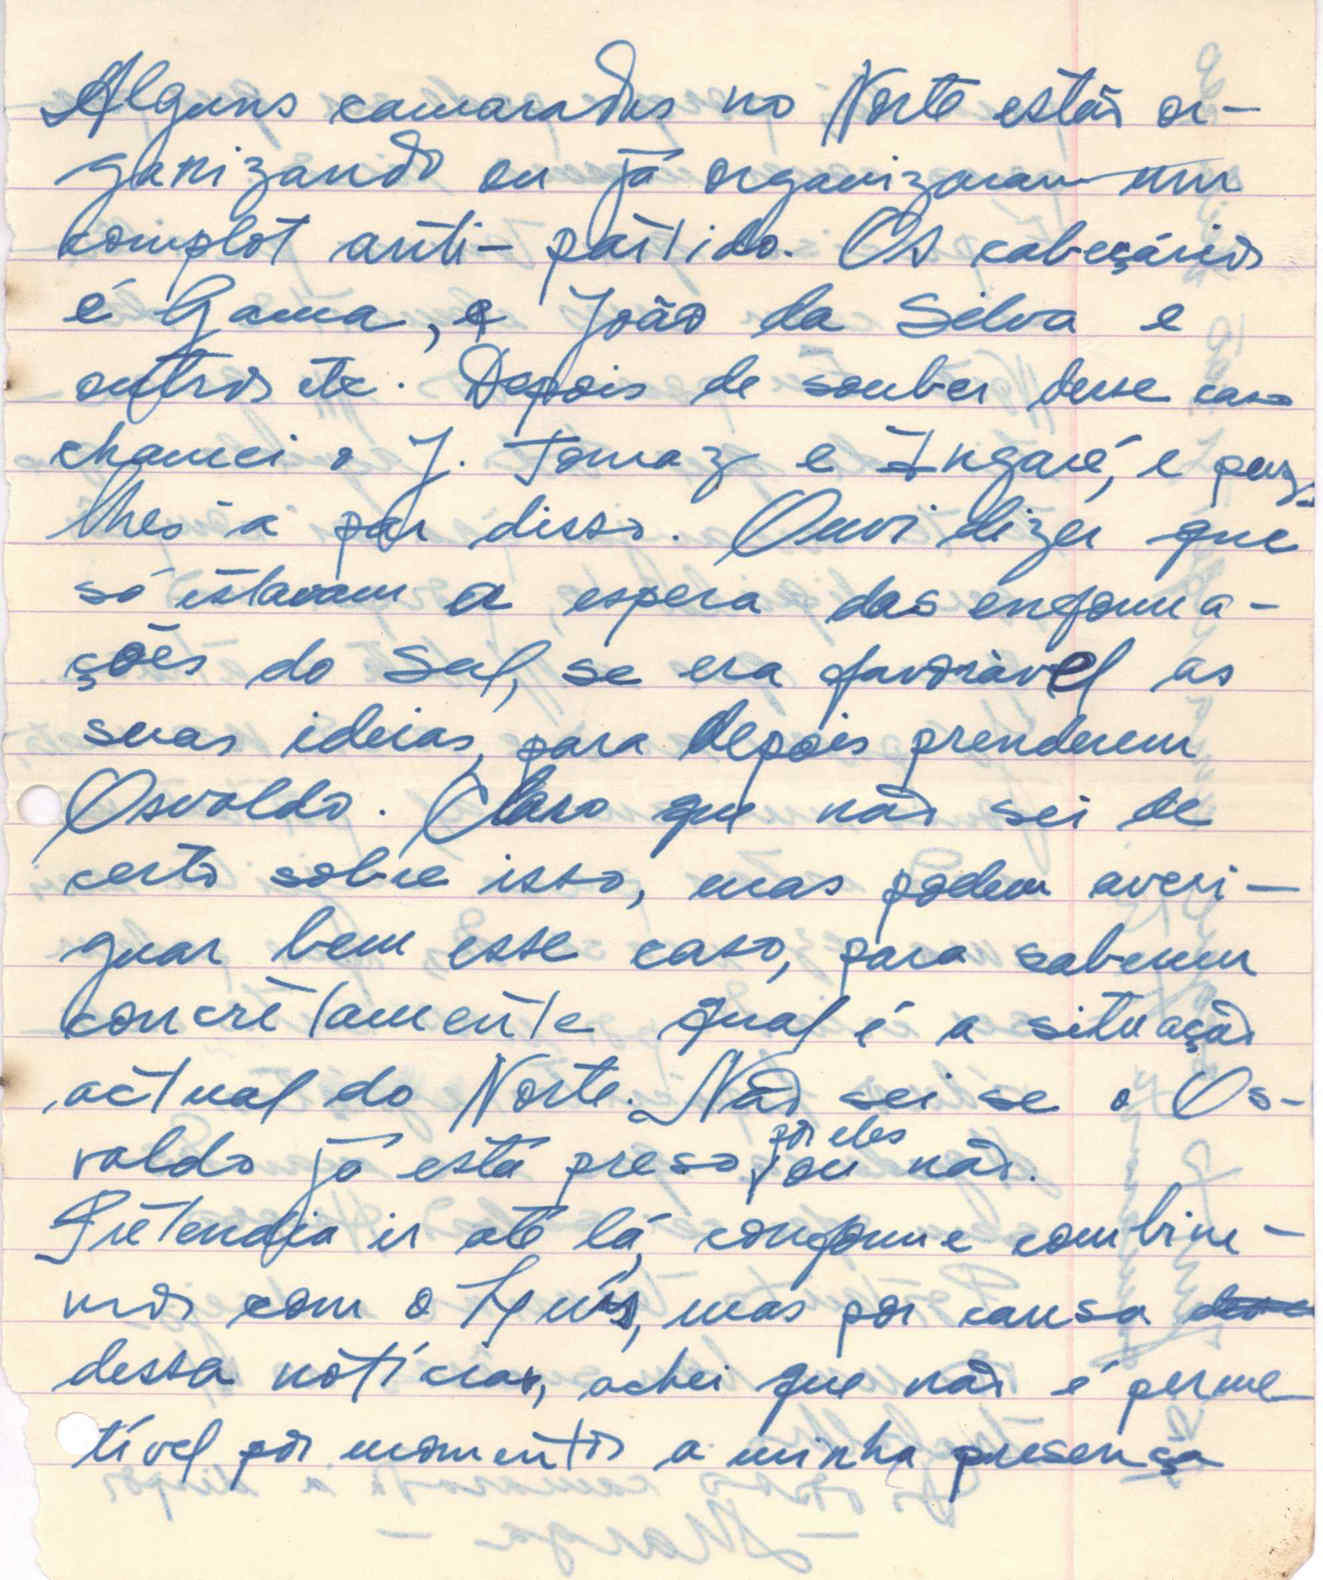 Alguns camaradas no Norte estão or-
ganizando ou já organizaram um
complot anti-partido. Os cabeçários
é Gama, e João da Silva e
outros etc. Depois de souber desse caso
chamei o J. Tomaz e Ingaré, e puz-
lhes a par disso. Ouvi dizer que
só estavam a espera das enforma-
ções do Sul, se era favorável as
suas ideias, para depois prenderem
Osvaldo. Claro que não sei de
certo sobre isso, mas podem averi-
guar bem esse caso, para saberem
concrètamente qual é a situação
actual do Norte. Não sei se o Os-
valdo já está preso por eles ou não.
Pretendia ir até lá, conforme combine-
mos com o, mas por causa
dessa notícia, achei que não é perme-
tível por momentos a minha presença